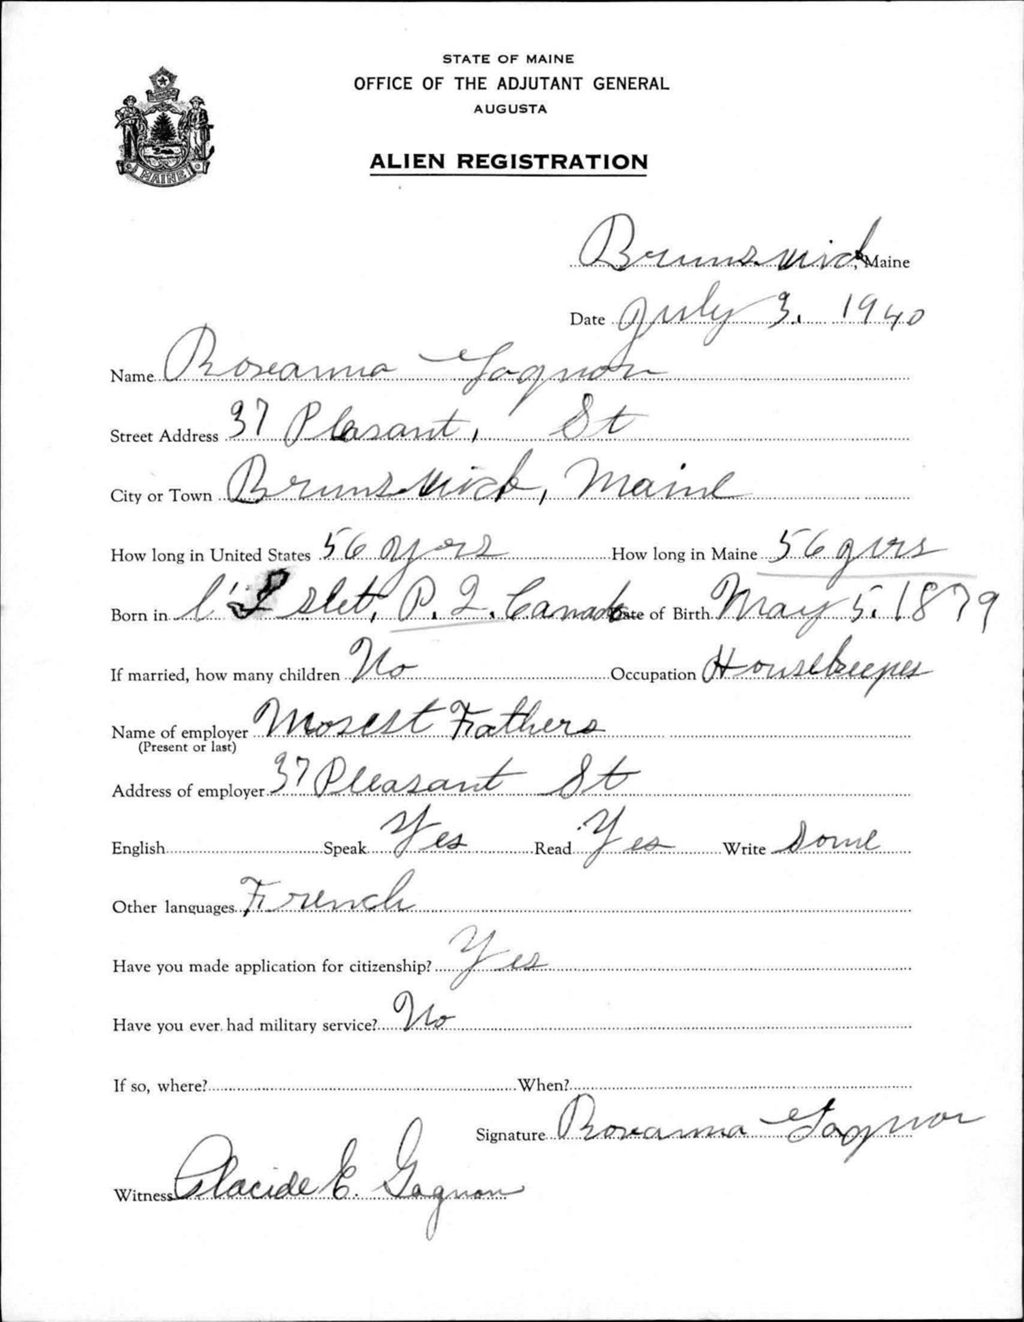 STATE OF MAINE
OFFICE OF THE ADJUTANT GENERAL
AUGUSTA
MAINE
ALIEN REGISTRATION
Brunswick, Maine
Date July 3, 1940
Name Roseanna Gagnon
Street Address 37 Pleasant, St
City or Town Brunswick, Maine
How long in United States 56 Years How long in Maine 56 yrs
Born in l'Islet, P.Q. Canada Date of Birth May 5, 1879
If married, how many children No Occupation Housekeeper
Name of employer Fathers
(Present or last)
Address of employer 37 Pleasant St
English Speak Yes Read Yes Write Some
Other languages French
Have you made application for citizenship? Yes
Have you ever had military service? No
If so, where? When?
Signature Roseanna Gagnon
Witness Placide E. Gagnon